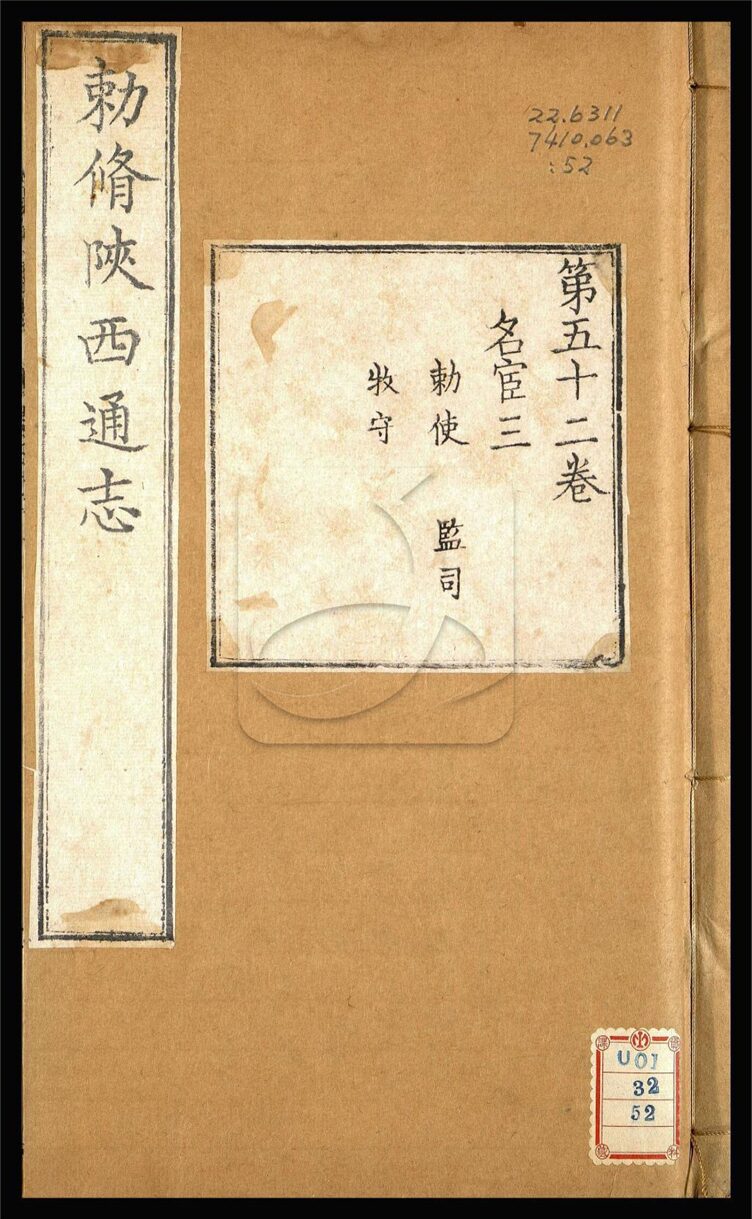 勅脩陝西通志
第五十二卷
名宦三
勅使 監司
牧守
22.6311
7410.063
:52
U01
32
52